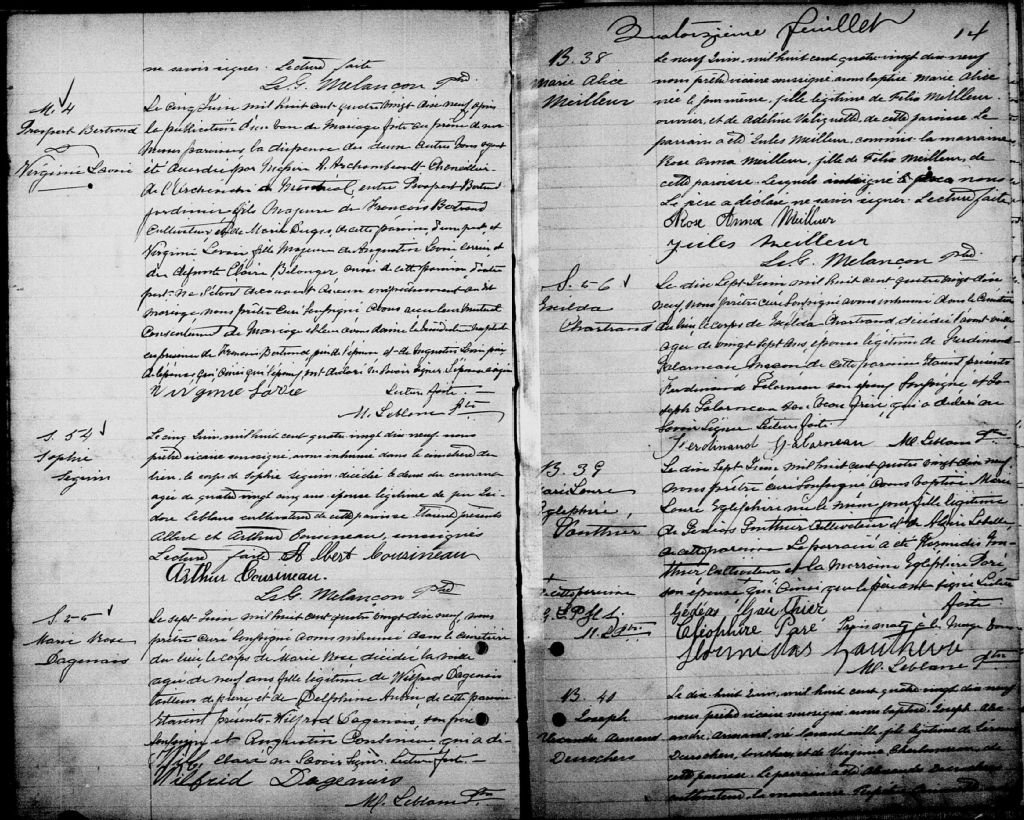 ne savoir signer. Lecture faite
L. G. Melançon ptre
M. 4
Prospert Bertrand
Virginie Lavoie
Le cinq Juin mil huit cent quatre vingt dix neuf après
la publication d'un ban de Mariage faite au prône de nos
Messes paroissiales la dispense des deux autres bans ayant
été accordée par Messire A. Archambeault Chancelier
de l'Archevêché de Montréal, entre Prospert Bertrand
fils Majeur de Francois Bertrand
Cultivateur et de Marie de cette paroisse d'une part et
Virginie fille Majeure de Augustin et
de défunte Claire Bélanger aussi de cette paroisse d'autre
part. Ne s'étant découvert aucun empêchement au dit
mariage nous prêtre Curé Soussigné avons reçu leur Mutuel
Consentement de Mariage et leur avons donné la bénédiction nuptiale
en présence de Francois Bertrand père de l'époux et de Augustin père
de l'épouse qui ainsi que l'époux ont déclaré ne savoir signer. L'épouse a signé
Virginie Lavoie
Lecture faite.
M. Leblanc ptre
S. 54
Sophie
Seguin
Le cinq Juin, mil huit cent quatre vingt dix neuf, nous
prêtre vicaire soussigné avons inhumé dans le cimetière du
lieu, le corps de Sophie Seguin décédée le deux du courant
agée de quatre vingt cinq ans épouse légitime de feu Isi-
dore Leblanc cultivateur de cette paroisse. Étaient présents
Albert et Arthur Cousineau, soussignés
Lecture faite Albert Cousineau
Arthur Cousineau.
L. G. Melançon ptre
S. 55
Marie Rose
Dagenais
Le sept Juin mil huit cent quatre vingt dix neuf, nous
prêtre curé Soussigné avons inhumé dans le cimetière
du lieu le corps de Marie Rose décédée la veille
agée de neuf ans fille légitime de Wilfrid Dagenais
tailleur de pierre et de Delphine Aubin, de cette paroisse
Étaient présents Wilfrid Dagenais, son père
soussigné et Augustin qui a dé-
claré ne Savoir Signer. Lecture faite.
Wilfrid Dagenais
M. Leblanc Ptre
Quatorzième feuillet 14
B. 38
Marie Alice
Meilleur
Le neuf Juin, mil huit cent quatre vingt dix neuf
nous prêtre vicaire soussigné avons baptisé Marie Alice
née le jour même, fille légitime de Félix Meilleur
ouvrier, et de Adeline Valiquette, de cette paroisse Le
parrain a été Jules Meilleur, commis la marraine
Rose Anna Meilleur, fille de Félix Meilleur, de
cette paroisse. Lesquels nous
Le père a déclaré ne savoir signer. Lecture faite
Rose Anna Meilleur
Jules Meilleur
L. G. Melançon ptre
S. 56
Exilda
Chartrand
Le dix Sept Juin mil huit cent quatre vingt dix
neuf, nous prêtre curé Soussigné avons inhumé dans le Cimetière
du lieu le corps de Exilda Chartrand, décédée l'avant veille
agée de vingt sept ans, épouse légitime de Ferdinand
Galarneau Maçon de cette paroisse étaient présents
Ferdinand Galarneau son époux Soussigné et Jo-
seph Galarneau son frère, qui a déclaré ne
Savoir Signer Lecture faite.
Ferdinand Galarneau M. Leblanc Ptre
B. 39
Marie Laure
Eglephire,
Gauthier
Le dix Sept Juin mil huit cent quatre vingt dix neuf
nous prêtre curé Soussigné avons baptisé Marie
Laure Eglephire née le même jour fille légitime
de Gédéas Gauthier Cultivateur et de Labelle
de cette paroisse Le parrain a été Hormidas Gau-
thier Cultivateur et la Marraine Eglephire Paré
son épouse qui Ainsi que le père ont signé Lecture
faite
de cette paroisse
Gédéas Gauthier
Cléophire Paré
Hormidas Gauthier
M. Leblanc Ptre
B. 40
Joseph
Alexandre Armand
Desrochers
Le dix huit Juin, mil huit cent quatre vingt dix neuf
nous prêtre vicaire soussigné avons baptisé Joseph Alex-
andre, Armand, né la veille, fils légitime de
Desrochers, et de Virginie Charbonneau, de
cette paroisse. Le parrain a été Alexandre Desrochers
cultivateur, la marraine